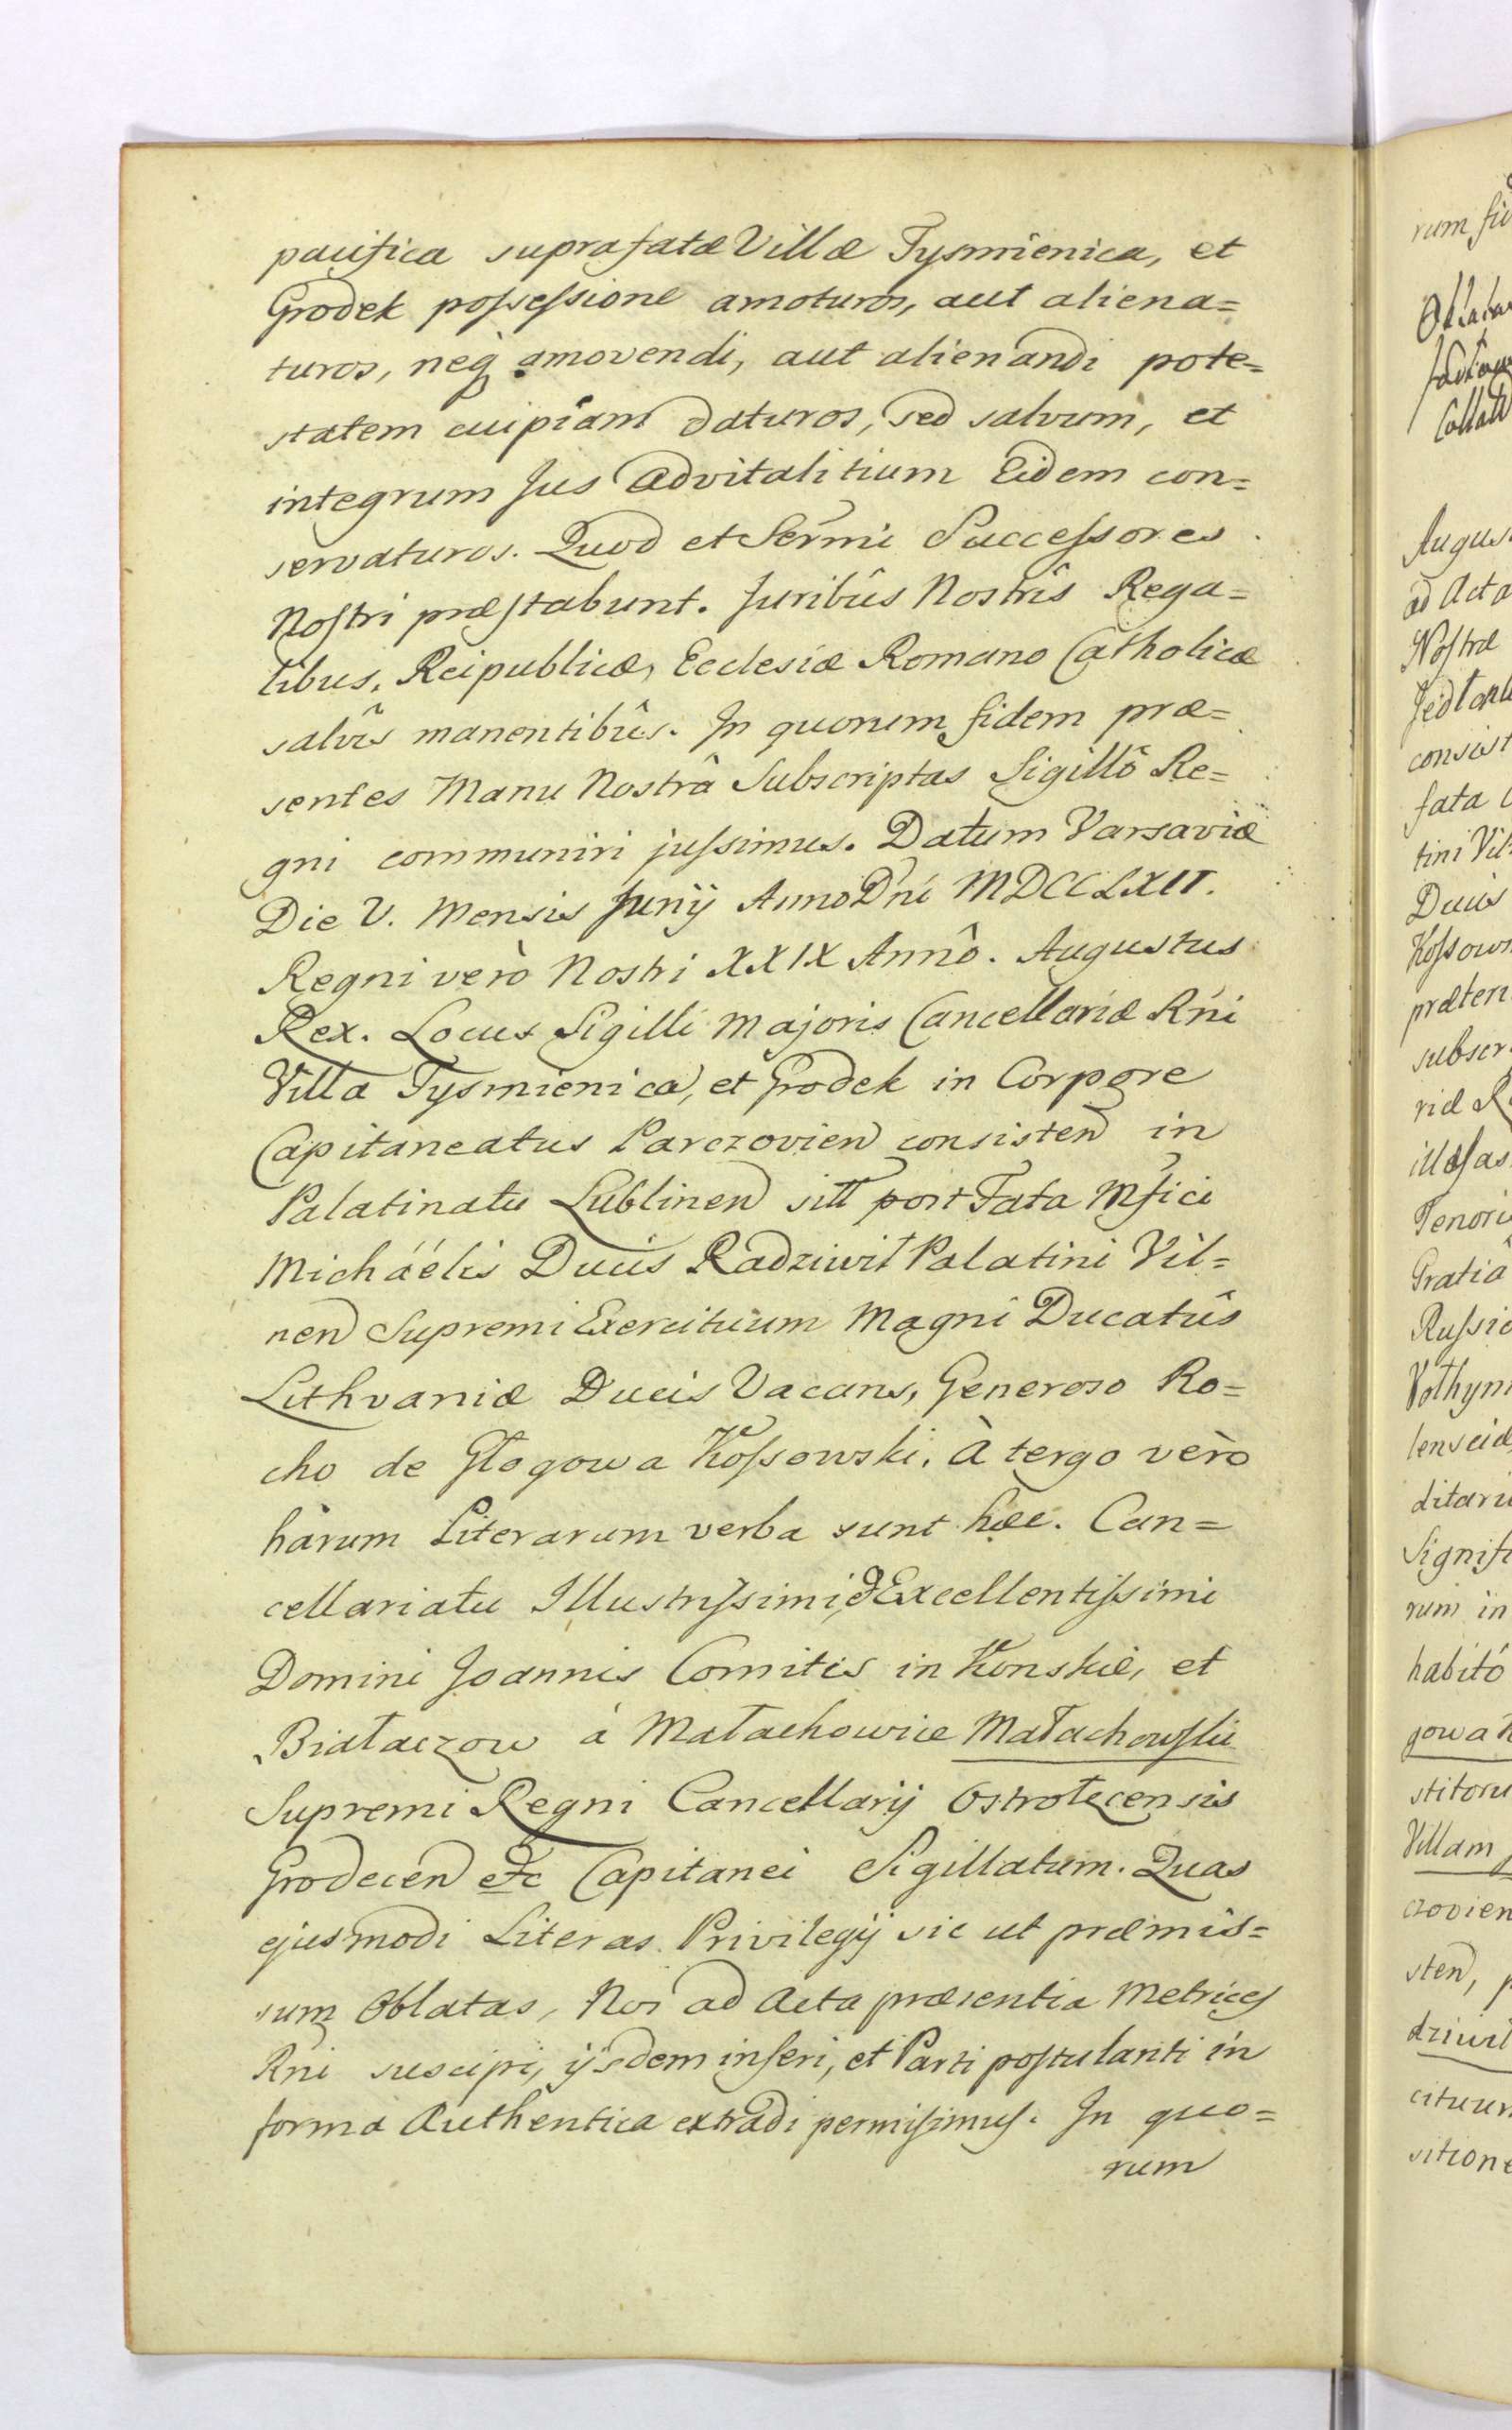 pacifica suprafatæ Villæ Tysmienica, et
Grodek possessione amoturos, aut aliena=
turos, neq amovendi, aut alienandi pote=
statem cuipiam daturos, sed salvum, et
integrum Jus Advitalitium Eidem con=
servaturos. Quod et Sermi Successores
Nostri præstabunt. Juribûs Nostrîs Rega=
libus, Reipublicæ, Ecclesiæ Romano Catholicæ
salvîs manentibûs. In quorum fidem præ=
sentes Manu Nostrâ Subscriptas Sigillô Re=
gni communiri jussimus. Datum Varsaviæ
Die V. Mensis Junÿ Anno Dni MDCCLXII.
Regni verò Nostri XXIX Annô. Augustus
Rex. Locus Sigilli Majoris Cancellariæ Rni
Villa Tysmienica, et Grodek in Corpore
Capitaneatus Parczovien consisten in
Palatinatu Lublinen sitt post Fata Mfici
Michaélis Ducis Radziwił Palatini Vil=
nen Supremi Exercituum Magni Ducatûs
Lithvaniæ Ducis Vacans, Generoso Ro=
cho de Głogowa Kossowski. À tergo verò
hârum Literarum verba sunt hæc. Can=
cellariatu Illustrissimi, & Excellentissimi
Domini Joannis Comitis in Konskie, et
Białaczow à Małachowice Małachowski
Supremi Regni Cancellarÿ Ostrołecensis
Grodecen etc Capitanei Sigillatum. Quas
ejusmodi Literas Privilegÿ sic ut præmis=
sum Oblatas, Nos ad Acta præsentia Metrices
Rni suscipi, ÿsdem inseri, et Parti postulanti in
forma Authentica extradi permisimus. In quo=
rum
rum
Augus
ad Acta
Nostræ
consist
fata
tini Vil=
Ducis
Kossows
præten
subscr
riæ R
illæsas
Tenoris
Gratiâ
Russiæ
Volhyni
lensciæ
ditariu
Signifi
rum in
habitô
gowa K
stitoru
Villam
czovien
sten, p
dziwił
cituum
sitione